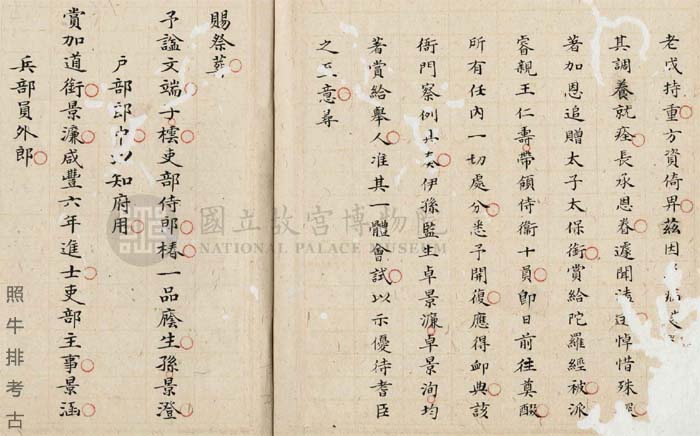 老成持重方資倚畀茲因
其調養就痊長承恩眷遽聞溘逝悼惜殊
著加恩追贈太子太保銜賞給陀羅經被派
睿親王仁壽帶領侍衛十員即日前往奠醊
所有任內一切處分悉予開復應得卹典該
衙門察例具奏伊孫監生卓景濂卓景洵均
著賞給舉人准其一體會試以示優待耆臣
之至意尋
賜祭葬
予諡文端子橒吏部侍郎椿一品廕生孫景澄
戶部郎中知府用
賞加道銜景濂咸豐六年進士吏部主事景涵
兵部員外郎
國立故宮博物院
NATIONAL PALACE MUSEUM
照牛排考古